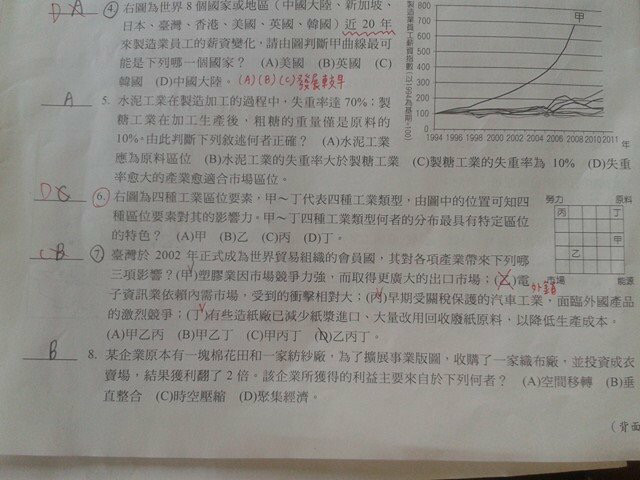 DA ④右圖為世界8個國家或地區（中國大陸、新加坡、
日本、臺灣、香港、美國、英國、韓國）近20年
來製造業員工的薪資變化，請由圖判斷甲曲線最可
能是下列哪一個國家？ (A)美國 (B)英國 (C)
韓國 (D)中國大陸。(A)(B)(C)發展較早
800
700
600
500
400
300
200
100
0
甲
1994 1996 1998 2000 2002 2004 2006 2008 2010 2011 年
A 5. 水泥工業在製造加工的過程中，失重率達70%；製
糖工業在加工生產後，粗糖的重量僅是原料的
10%。由此判斷下列敘述何者正確？ (A)水泥工業
應為原料區位 (B)水泥工業的失重率大於製糖工業 (C)製糖工業的失重率為10% (D)失重
率愈大的產業愈適合市場區位。
DC ⑥右圖為四種工業區位要素，甲～丁代表四種工業類型，由圖中的位置可知四
種區位要素對其的影響力。甲～丁四種工業類型何者的分布最具有特定區位
的特色？ (A)甲 (B)乙 (C)丙 (D)丁。
勞力 原料
丙 丁
甲
乙
市場 能源
CB ⑦臺灣於2002年正式成為世界貿易組織的會員國，其對各項產業帶來下列哪
三項影響？(甲)塑膠業因市場競爭力強，而取得更廣大的出口市場；(乙)電
子資訊業依賴內需市場，受到的衝擊相對大；(丙)早期受關稅保護的汽車工業，面臨外國產品
的激烈競爭；(丁)有些造紙廠已減少紙漿進口、大量改用回收廢紙原料，以降低生產成本。
(A)甲乙丙 (B)甲乙丁 (C)甲丙丁 (D)乙丙丁。
B 8. 某企業原本有一塊棉花田和一家紡紗廠，為了擴展事業版圖，收購了一家織布廠，並投資成衣
賣場，結果獲利翻了2倍。該企業所獲得的利益主要來自於下列何者？ (A)空間移轉 (B)垂
直整合 (C)時空壓縮 (D)聚集經濟。
(背面